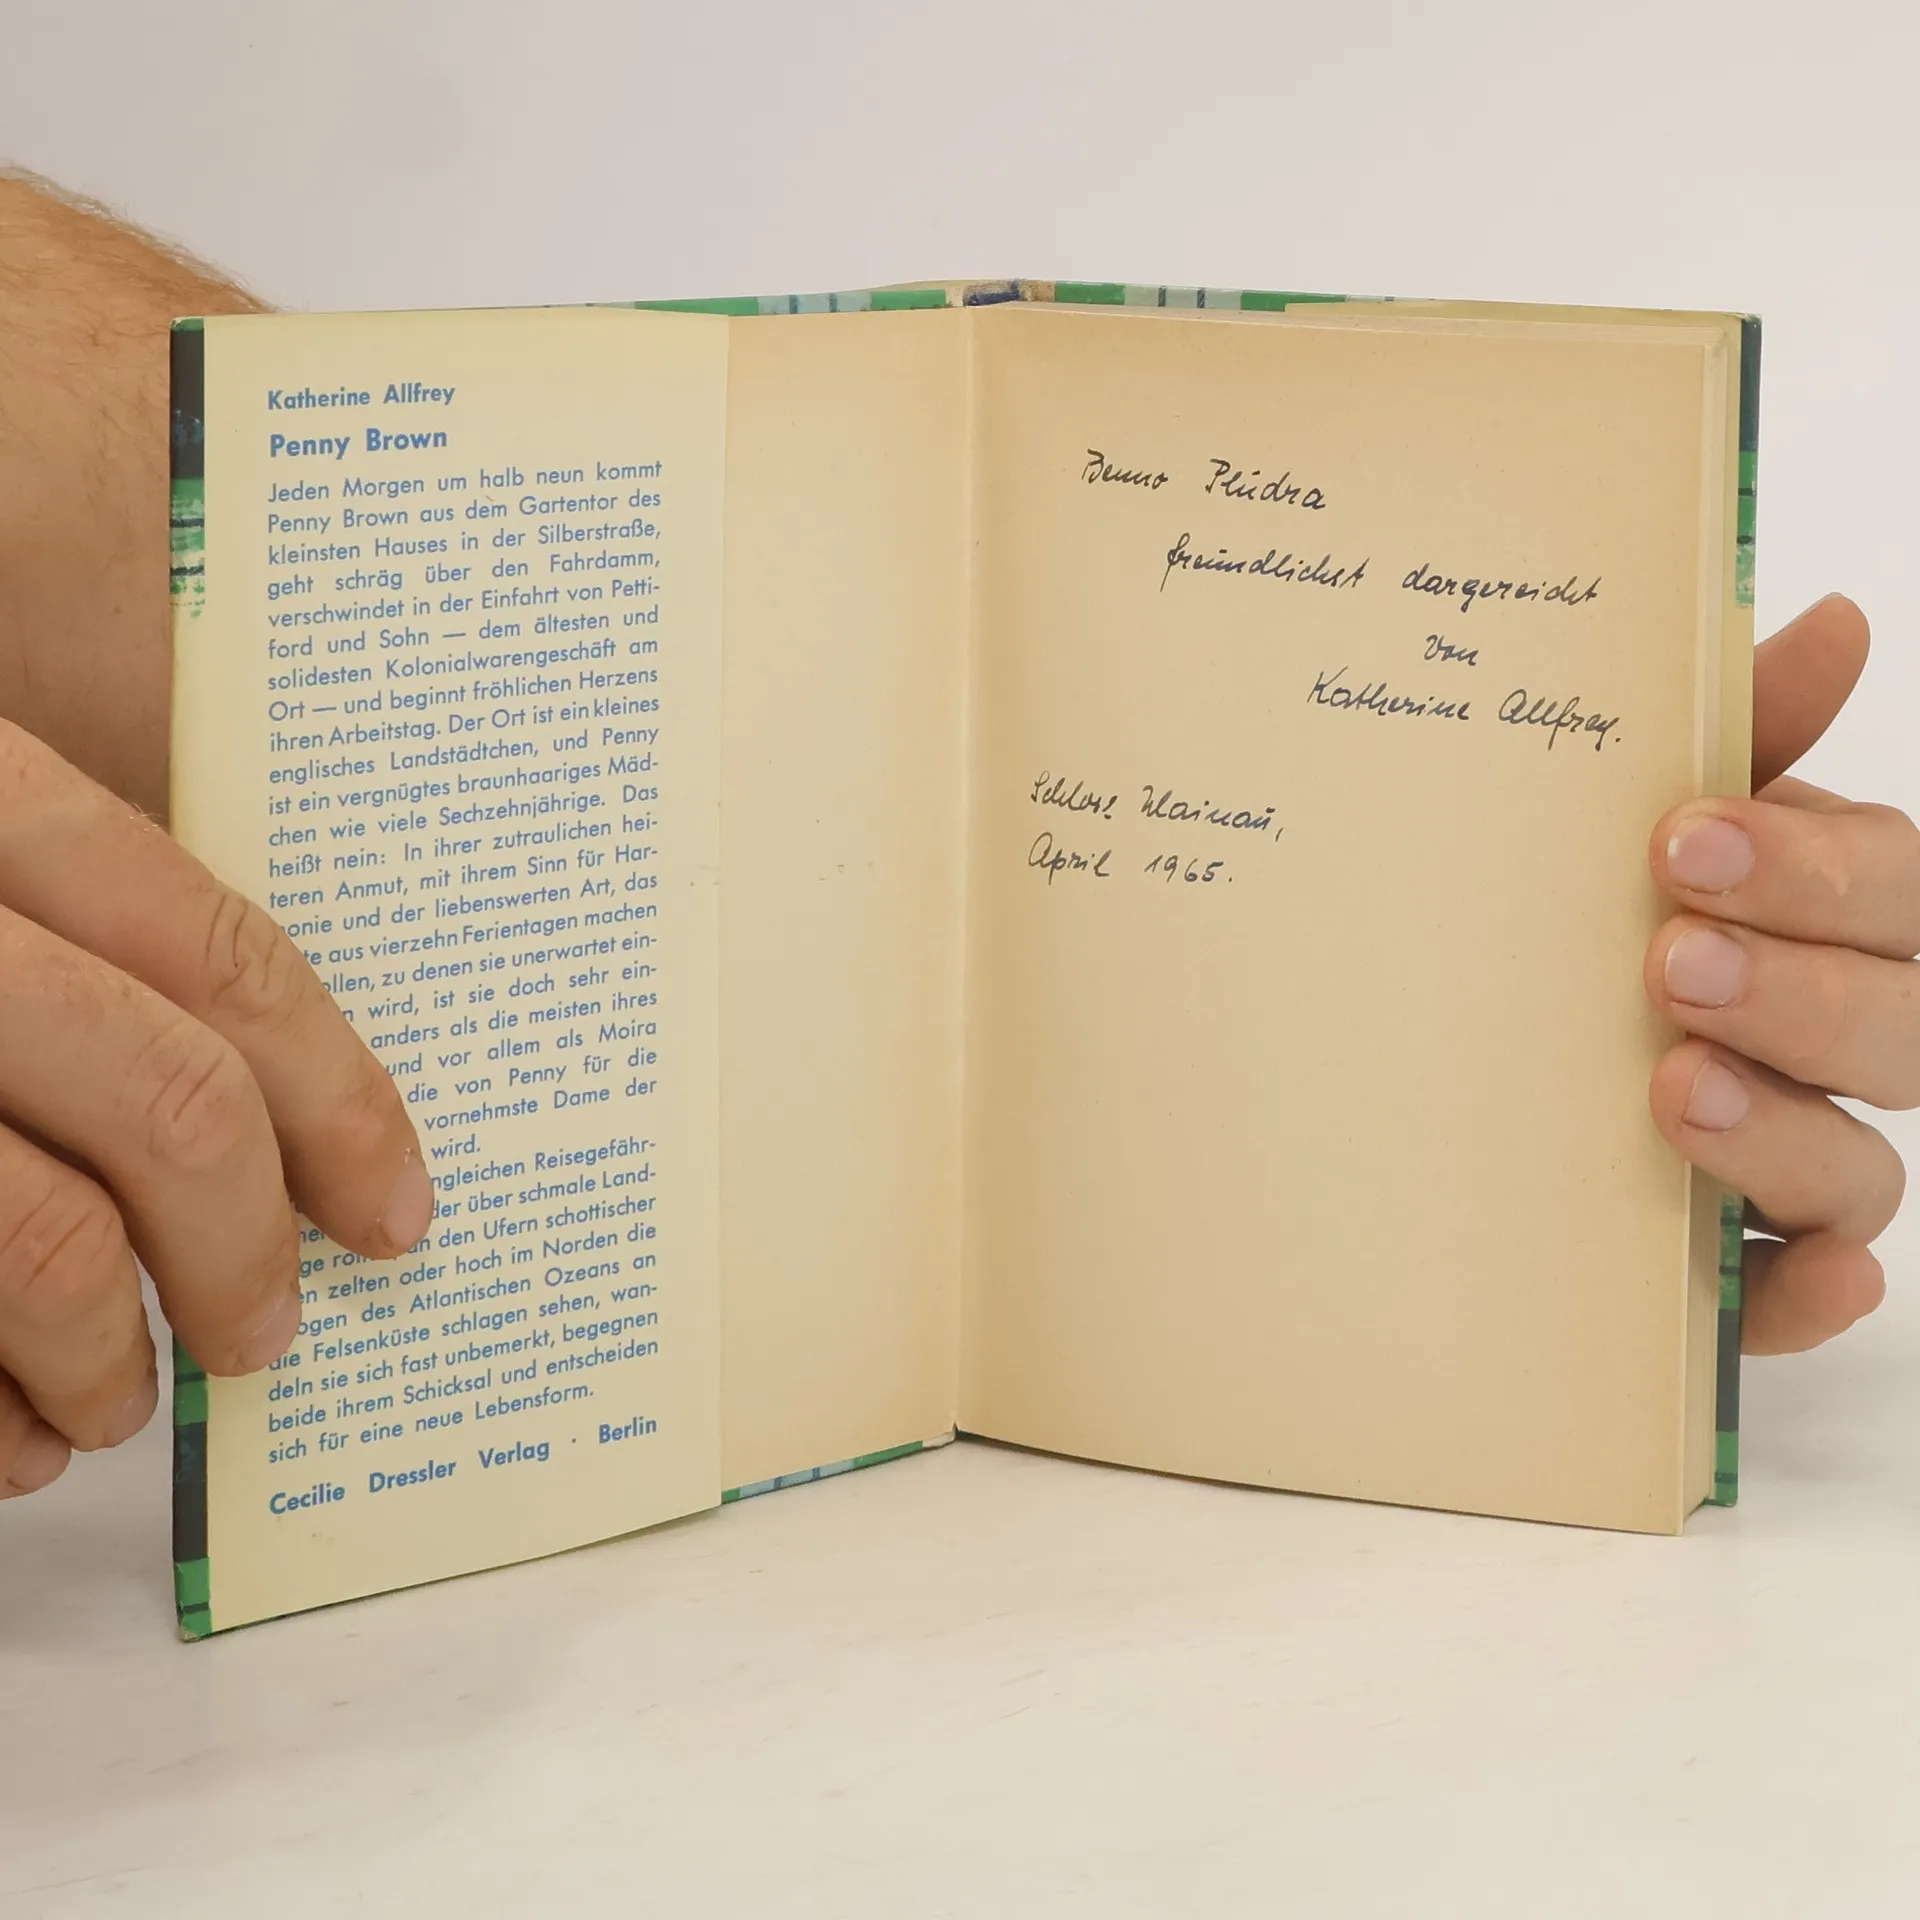 Katherine Allfrey
Penny Brown
Jeden Morgen um halb neun kommt
Penny Brown aus dem Gartentor des
kleinsten Hauses in der Silberstraße,
geht schräg über den Fahrdamm,
verschwindet in der Einfahrt von Petti-
ford und Sohn — dem ältesten und
solidesten Kolonialwarengeschäft am
Ort — und beginnt fröhlichen Herzens
ihren Arbeitstag. Der Ort ist ein kleines
englisches Landstädtchen, und Penny
ist ein vergnügtes braunhaariges Mäd-
chen wie viele Sechzehnjährige. Das
heißt nein: In ihrer zutraulichen hei-
teren Anmut, mit ihrem Sinn für Har-
onie und der liebenswerten Art, das
te aus vierzehn Ferientagen machen
ollen, zu denen sie unerwartet ein-
n wird, ist sie doch sehr ein-
anders als die meisten ihres
und vor allem als Moira
die von Penny für die
vornehmste Dame der
wird.
ngleichen Reisegefähr-
der über schmale Land-
ge an den Ufern schottischer
en zelten oder hoch im Norden die
ogen des Atlantischen Ozeans an
die Felsenküste schlagen sehen, wan-
deln sie sich fast unbemerkt, begegnen
beide ihrem Schicksal und entscheiden
sich für eine neue Lebensform.
Cecilie Dressler Verlag · Berlin
Benno Pludra
freundlichst dargereicht
von
Katherine Allfrey.
Schloss Mainau,
April 1965.